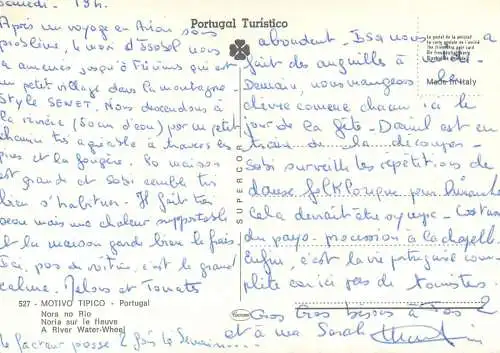 Samedi - 19h.
Après un voyage en avion sans
problème, le mari d'Isabel nous
a amenés jusqu'à qui est
un petit village dans la montagne -
Style SENET. Nous descendons à
la rivière (50cm d'eau) par un petit
chemin très agréable à travers les
pins et la fougère. La maison
est grande et Sobi semble très
bien s'habituer. Il fait très
beau mais une chaleur supportable
et la maison garde bien le frais.
Ici, pas de voitures, c'est le grand
calme. Melons et Tomates
527 - MOTIVO TIPICO - Portugal
Nora no Rio
Noria sur le fleuve
A River Water-Wheel
Le facteur passe 2 fois la semaine...
Portugal Turístico
SUPERCOR
Made in Italy
abondent - Isa nous a
fait des anguilles à
Demain, nous mangeons la
chèvre comme chacun ici le
jour de la fête - Daniel est en
train de la découper -
Sobi surveille les répétitions de
danse folklorique pour dimanche
Cela devrait être sympa - Costumes
du pays - procession à la chapelle
Enfin, c'est la vie portugaise com-
plète car ici pas de touristes.
Gros très bisous à vous 2
et à ma Sarah